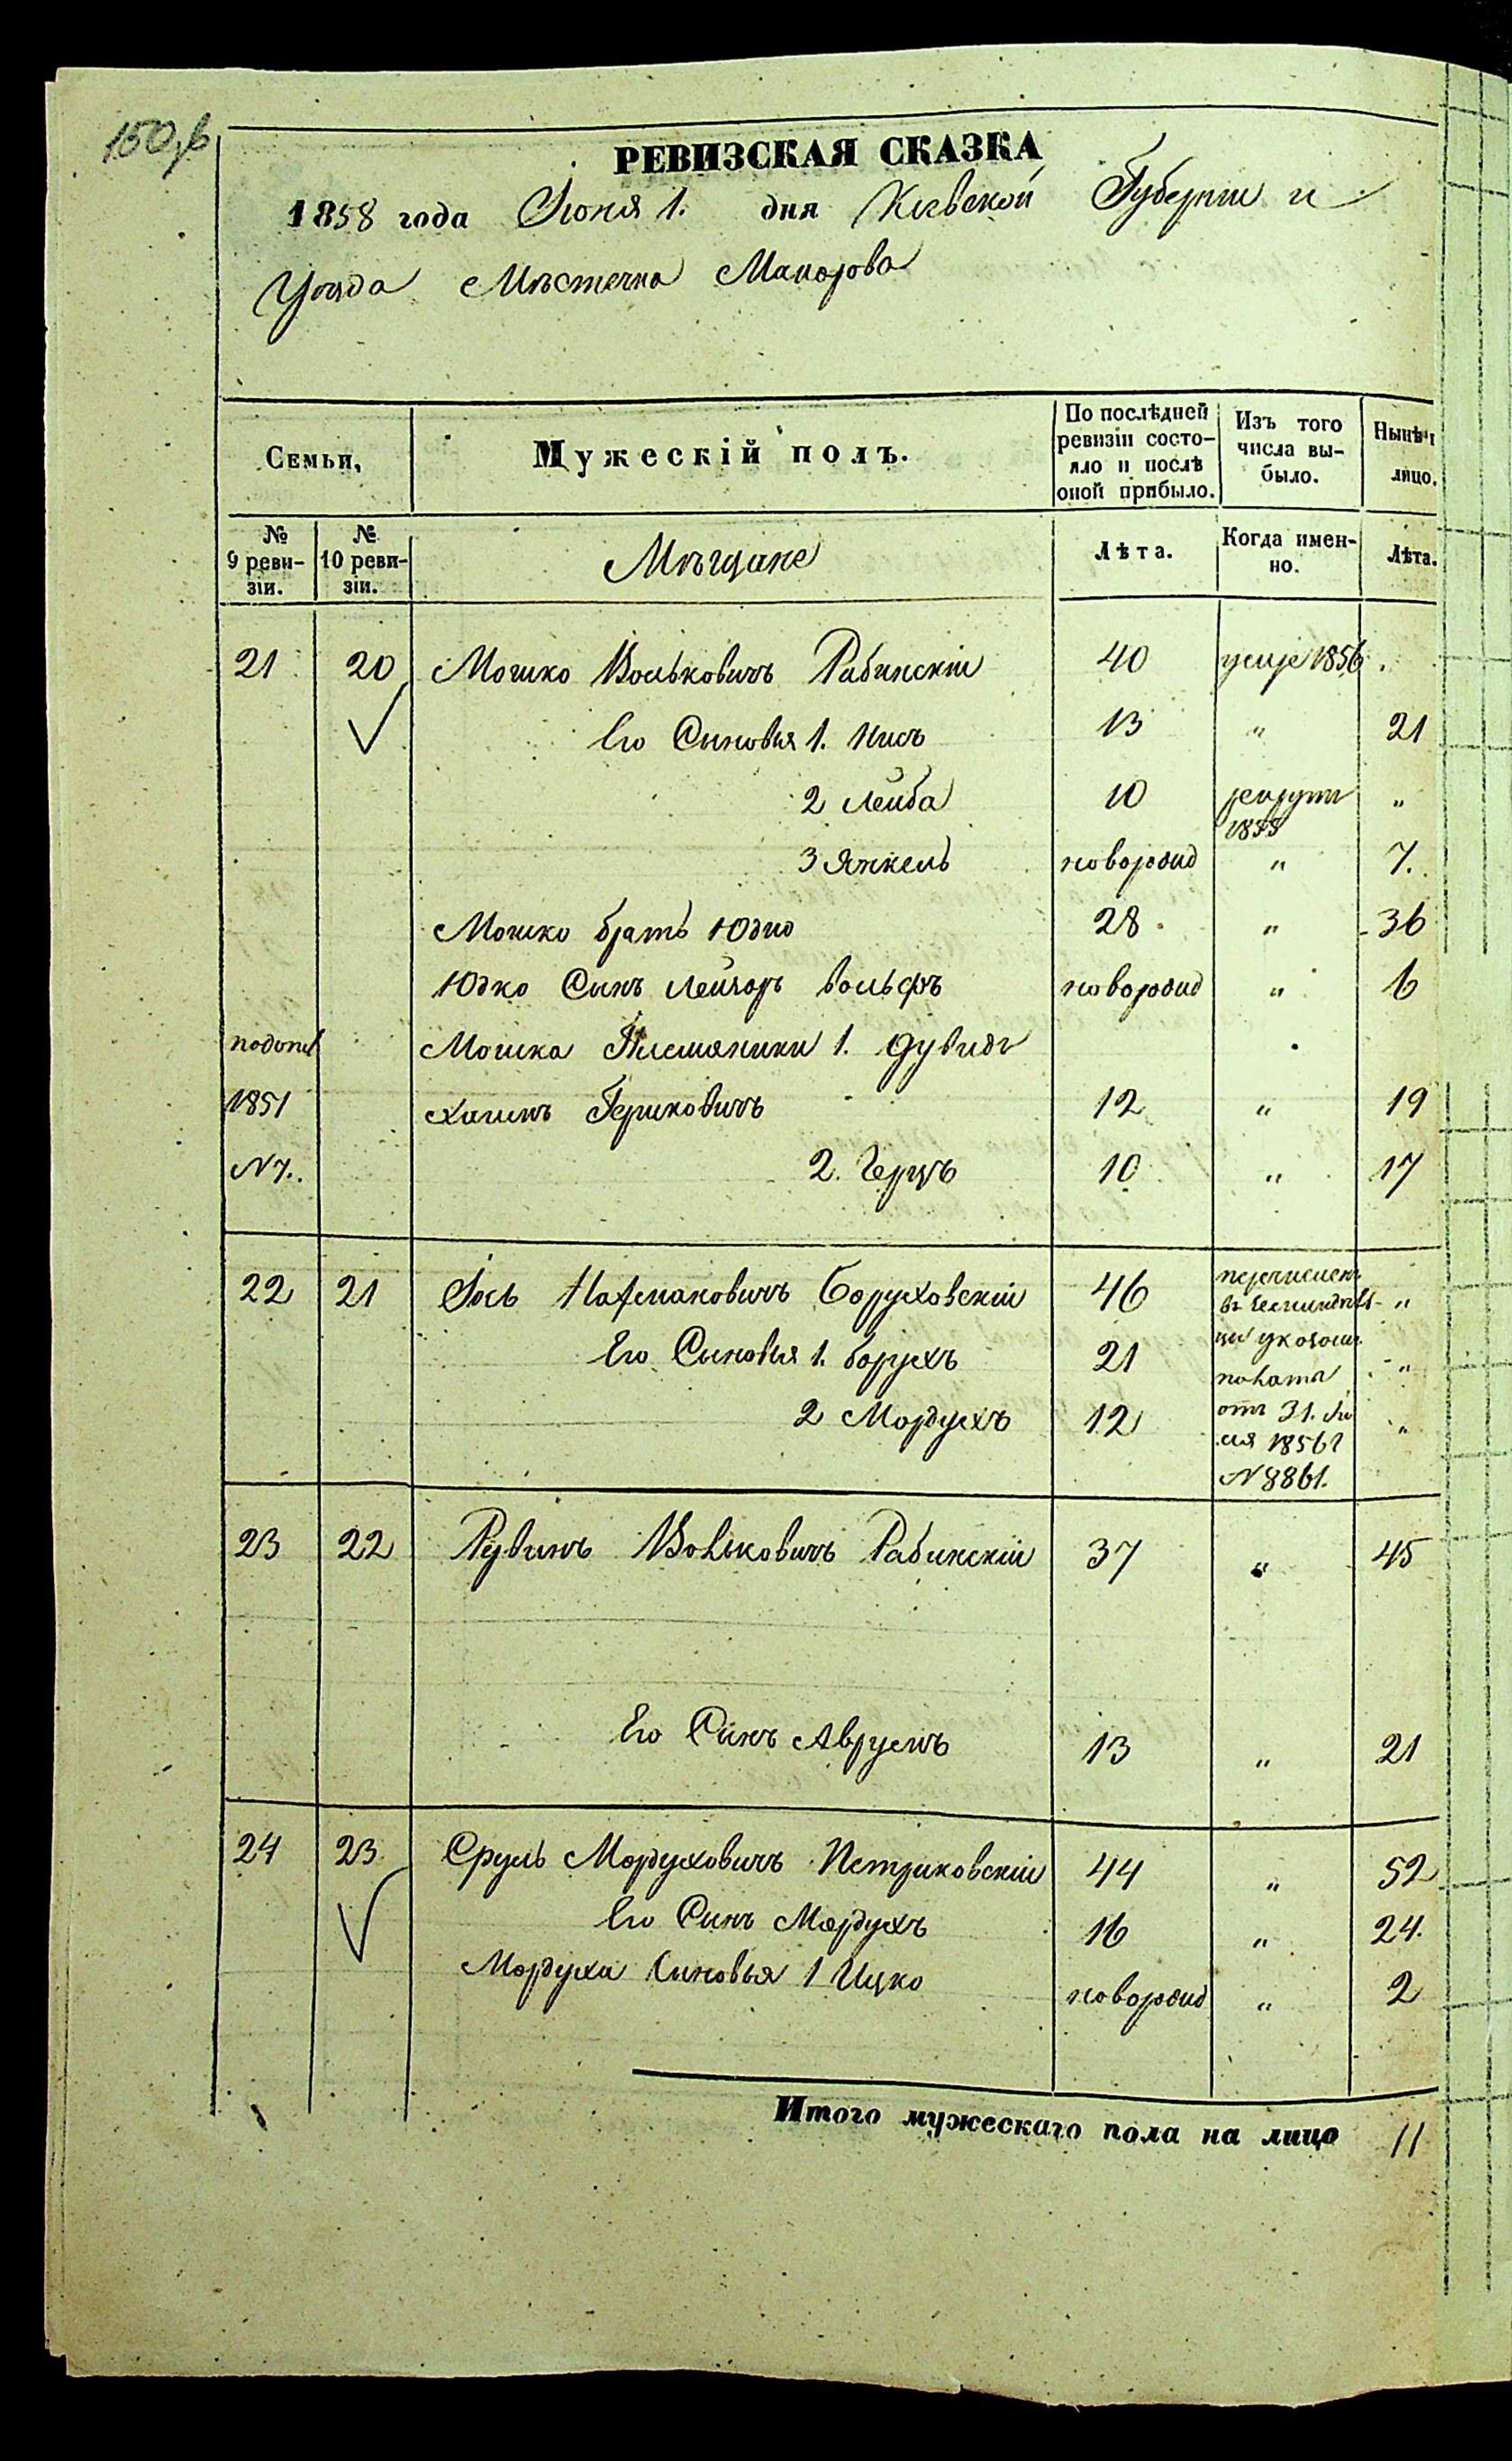 150,б
РЕВИЗСКАЯ СКАЗКА
1858 года Іюня 1. дня Кіевской Губерніи и
Уѣзда Мѣстечка Макарова
Семьи,
Мужескій полъ.
По послѣдней ревизіи состо-
яло и послѣ оной прибыло.
Изъ того числа вы-
было.
Нынѣ
лицо.
№ 9 реви-
зіи.
№ 10 реви-
зіи.
Мѣщане
Лѣта.
Когда имен-
но.
Лѣта.
21 20 Мошко Вольковичъ Рабинскій 40 умре 1856
Его Сыновья 1. Нисъ 13 " 21
2 Лейба 10 рекрутъ 1855 "
3 Янкель новорожд " 7.
Мошко братъ Юдко 28 " 36
Юдко Сынъ Лейзоръ Вольфъ новорожд " 6
Мошка Племяники 1. Дувидъ
1851 Хаимъ Гершковичъ 12 " 19
N 7. 2. Герцъ 10 " 17
22 21 Іось Нахмановичъ Боруховскій 46 перечисленъ "
Его Сыновья 1. Борухъ 21 "
2 Мордухъ 12 отъ 31. "
1856 г
N 8861.
23 22 Рувинъ Вольковичъ Рабинскій 37 " 45
Его Сынъ Аврумъ 13 " 21
24 23 Сруль Мордуховичъ Петриковскій 44 " 52
Его Сынъ Мордухъ 16 " 24.
Мордуха Сыновья 1 Ицко новорожд " 2
Итого мужескаго пола на лицо 11